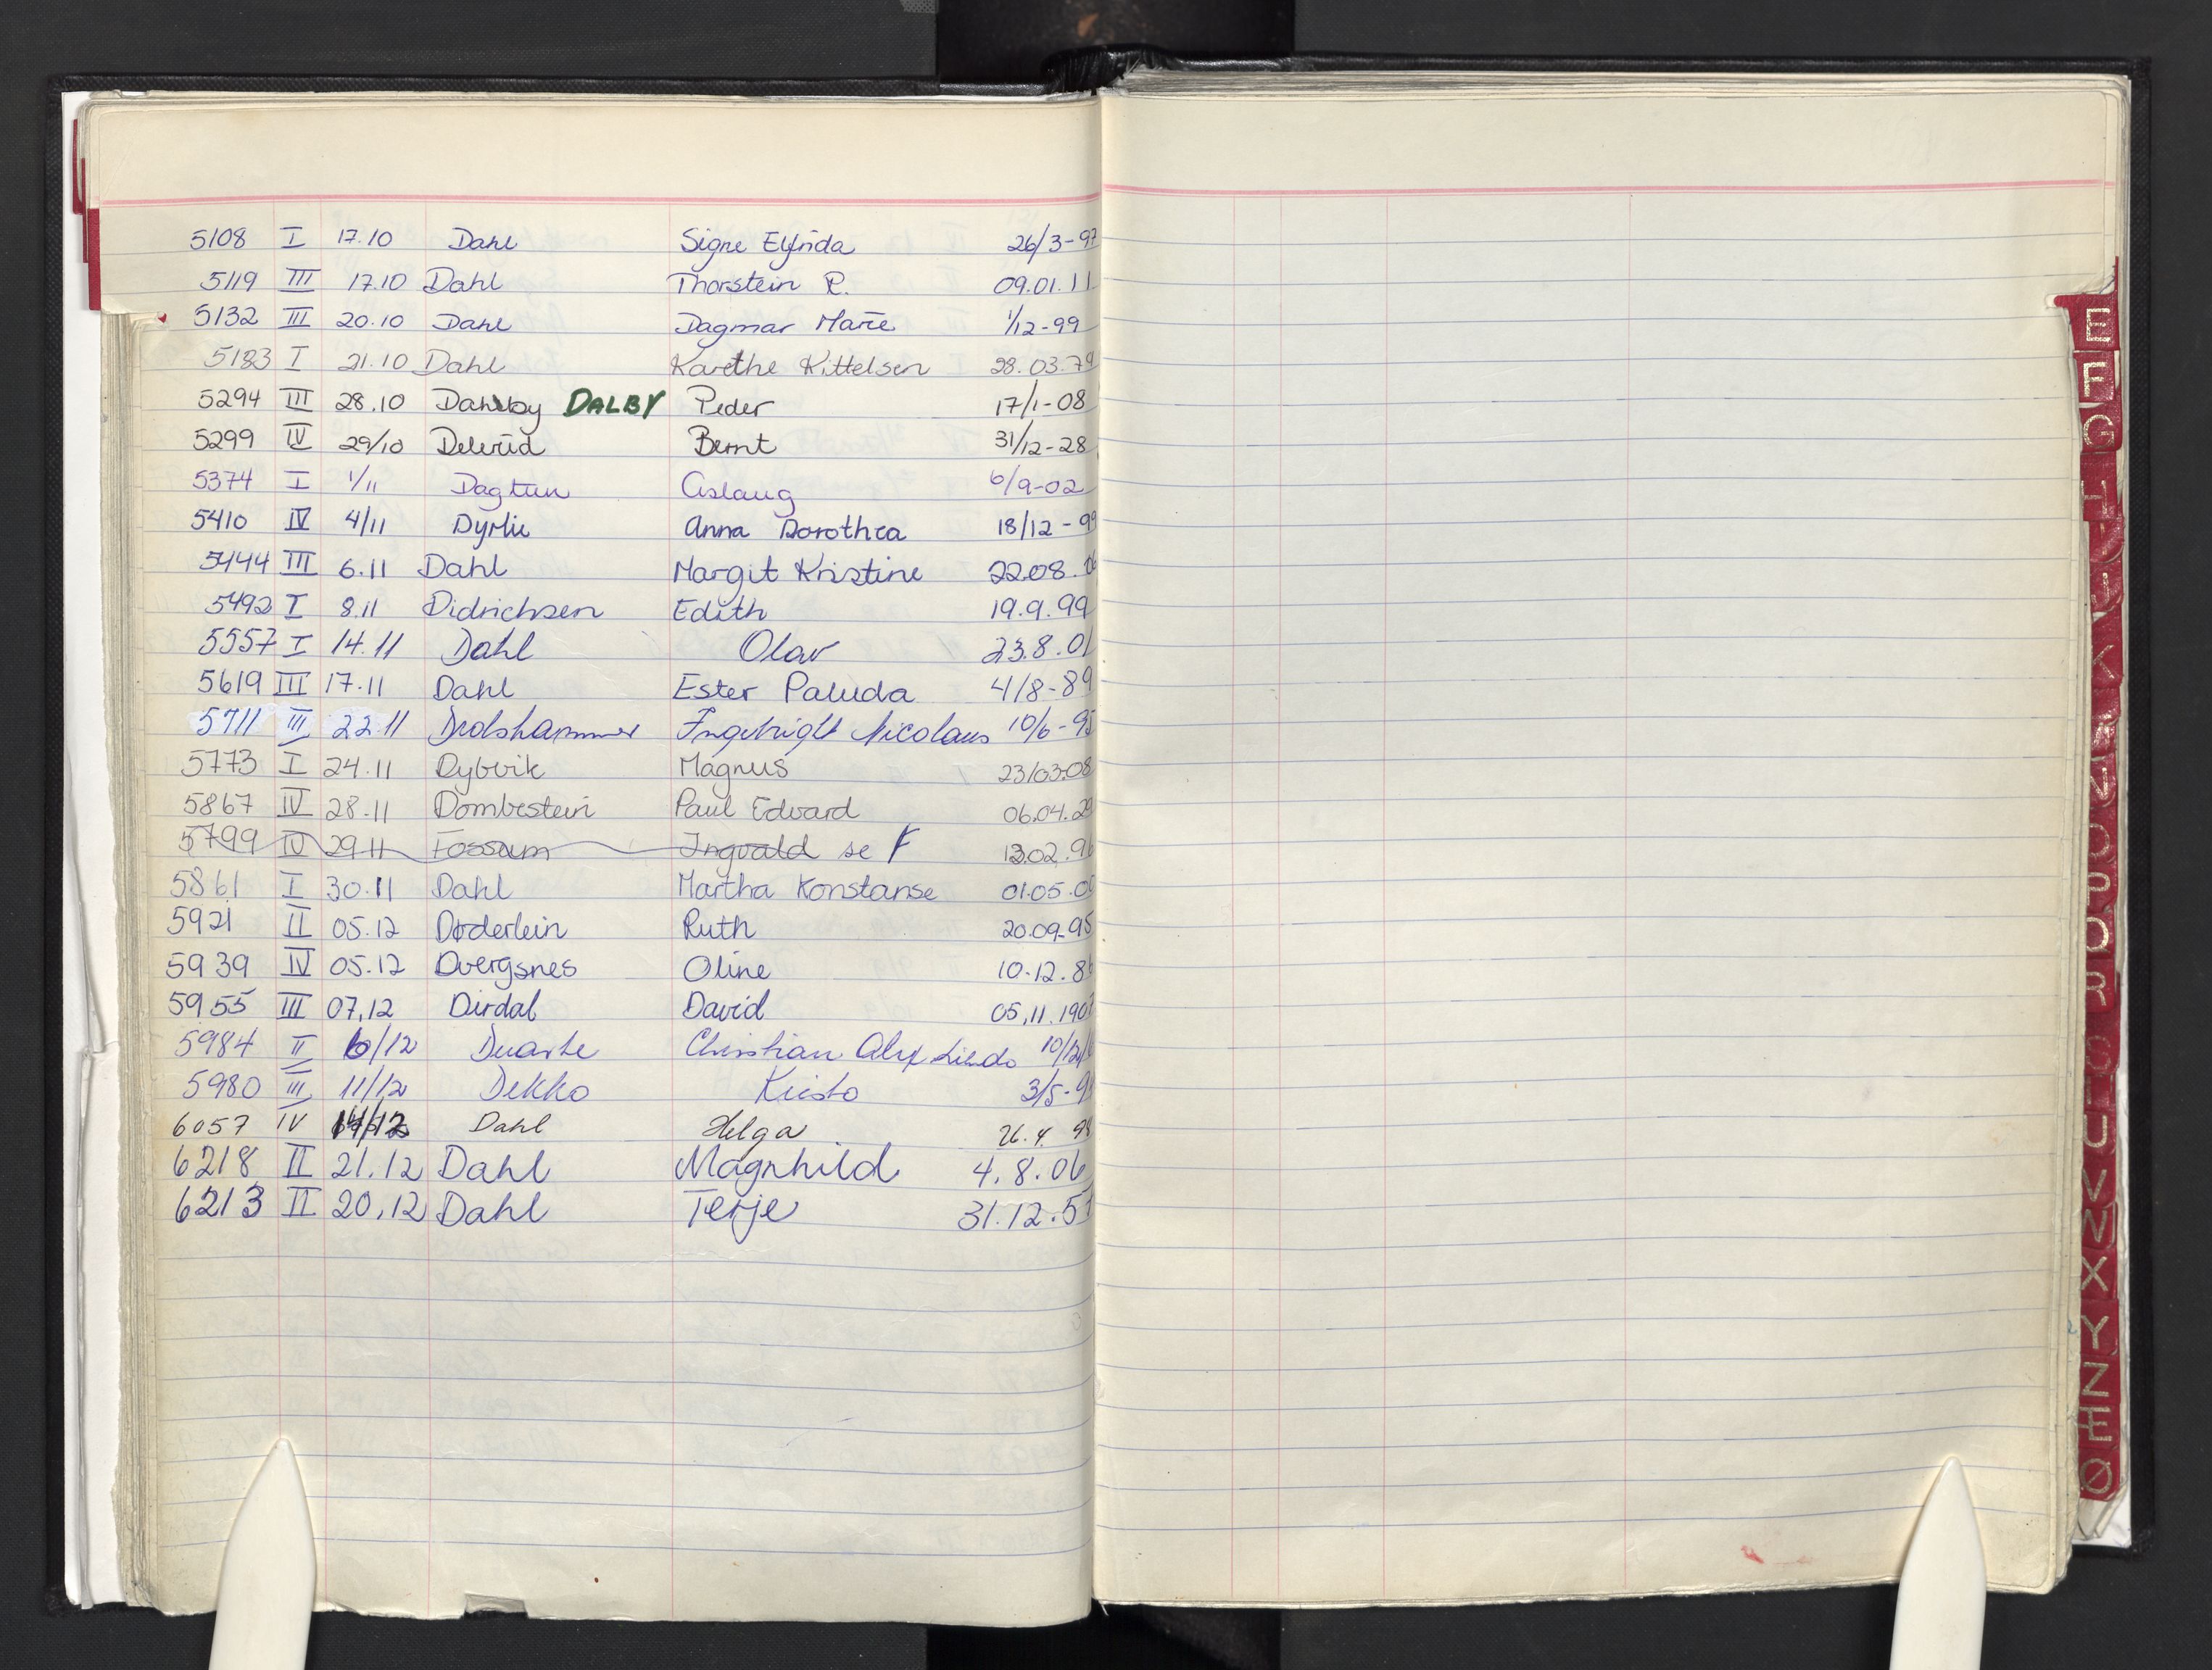 5108 I 17.10 Dahl Signe Elfrida 26/3-97
5119 III 17.10 Dahl Thorstein R. 09.01.11
5132 III 20.10 Dahl Dagmar Marie 1/12-99
5183 I 21.10 Dahl Karethe Kittelsen 28.03.79
5294 III 28.10 DALBY Peder 17/1-08
5299 IV 29/10 Delerud Bernt 31/12-28
5374 I 1/11 Dagtun Aslaug 6/9-02
5410 IV 4/11 Dyrlie Anna Dorothea 18/12-99
5444 III 6.11 Dahl Margit Kristine 22.08.
5492 I 8.11 Didrichsen Edith 19.9.99
5557 I 14.11 Dahl Olav 23.8.01
5619 III 17.11 Dahl Ester Paluda 4/8-89
5711 III 22.11 Drolshammer Ingebright Nicolaus 10/6-95
5773 I 24.11 Dybvik Magnus 23/03.08
5867 IV 28.11 Dombestein Paul Edvard 06.04.29
5799 IV 29.11 Fossum Ingvald se F 13.02.96
5861 I 30.11 Dahl Martha Konstanse 01.05.
5921 II 05.12 Døderlein Ruth 20.09-95
5939 IV 05.12 Dvergsnes Oline 10.12.
5955 III 07.12 Dirdal David 05.11.
5984 II /12 Duarte Christian
5980 III 11/12 Dekko Kristo 3/5-
6057 IV 14/12 Dahl Helga 26.4. 98
6218 II 21.12 Dahl Magnhild 4.8.06
6213 II 20.12 Dahl Terje 31.12.57
E
F
G
H
I
J
K
N
O
P
Q
R
S
T
U
V
W
X
Y
Z
Æ
Ø